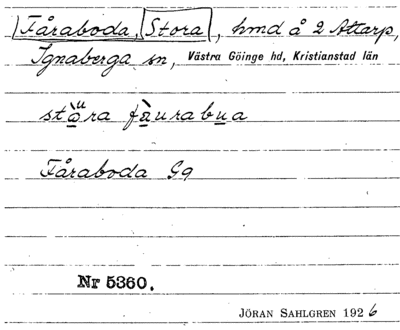 Fåraboda, Stora, hmd å 2 Attarp,
Ignaberga sn, Västra Göinge hd, Kristianstad län
Fåraboda Gg
Nr 5360.
JÖRAN SAHLGREN 1926